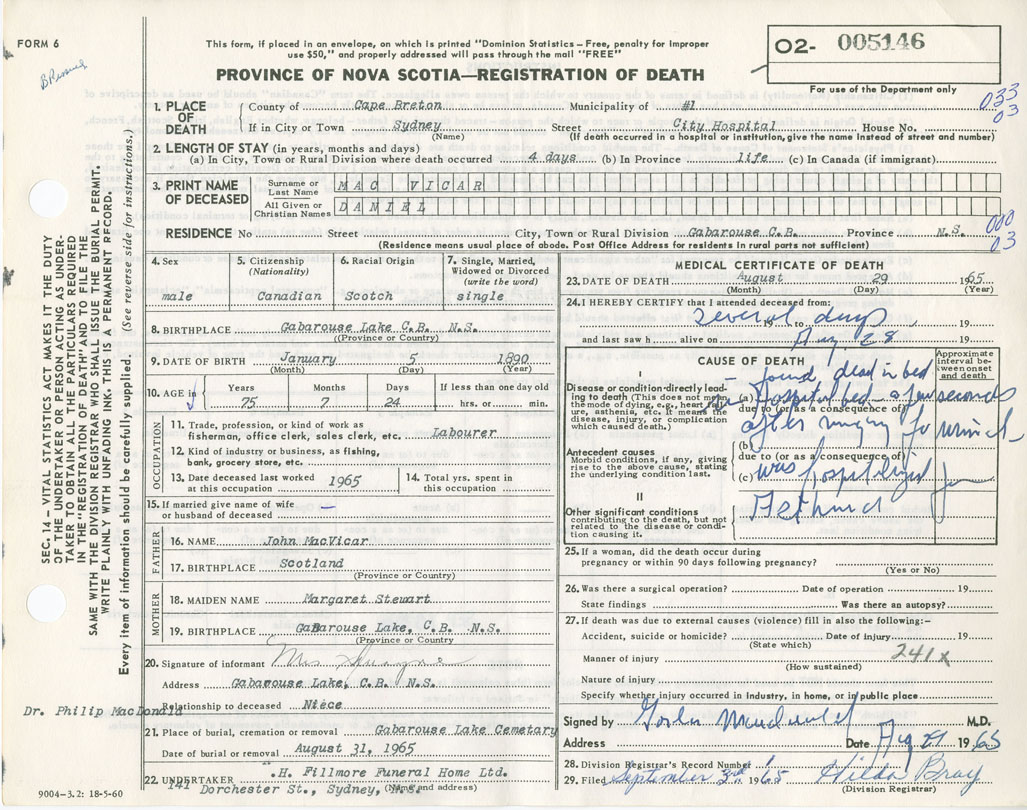 FORM 6
This form, if placed in an envelope, on which is printed "Dominion Statistics – Free, penalty for improper
use $50," and properly addressed will pass through the mail "FREE"
PROVINCE OF NOVA SCOTIA—REGISTRATION OF DEATH
02- 005146
For use of the Department only
033
03
1. PLACE OF DEATH
County of Cape Breton Municipality of #1
If in City or Town Sydney Street City Hospital House No.
(Name) (If death occurred in a hospital or institution, give the name instead of street and number)
2. LENGTH OF STAY (in years, months and days)
(a) In City, Town or Rural Division where death occurred 4 days (b) In Province life (c) In Canada (if immigrant)
3. PRINT NAME OF DECEASED
Surname or Last Name MAC VICAR
All Given or Christian Names DANIEL
000
03
RESIDENCE No Street City, Town or Rural Division Gabarouse C.B. Province N.S.
(Residence means usual place of abode. Post Office Address for residents in rural parts not sufficient)
4. Sex
male
5. Citizenship
(Nationality)
Canadian
6. Racial Origin
Scotch
7. Single, Married, Widowed or Divorced
(write the word)
single
8. BIRTHPLACE Gabarouse Lake C.B. N.S.
(Province or Country)
9. DATE OF BIRTH January 5 1890
(Month) (Day) (Year)
10. AGE in
Years Months Days If less than one day old
75 7 24 hrs. or min.
OCCUPATION
11. Trade, profession, or kind of work as
fisherman, office clerk, sales clerk, etc. Labourer
12. Kind of industry or business, as fishing,
bank, grocery store, etc.
13. Date deceased last worked
at this occupation 1965
14. Total yrs. spent in
this occupation
15. If married give name of wife
or husband of deceased –
FATHER
16. NAME John MacVicar
17. BIRTHPLACE Scotland
(Province or Country)
MOTHER
18. MAIDEN NAME Margaret Stewart
19. BIRTHPLACE Gabarouse Lake, C.B. N.S.
(Province or Country)
20. Signature of informant Mrs
Address Gabarouse Lake, C.B. N.S.
Relationship to deceased Niece
Dr. Philip MacDonald
21. Place of burial, cremation or removal Gabarouse Lake Cemetary
Date of burial or removal August 31, 1965
22. UNDERTAKER .H. Fillmore Funeral Home Ltd.
141 Dorchester St., Sydney, N.S.
(Name and address)
9004–3.2: 18-5-60
MEDICAL CERTIFICATE OF DEATH
23. DATE OF DEATH August 29 1965
(Month) (Day) (Year)
24. I HEREBY CERTIFY that I attended deceased from:
several days 19 to 19
and last saw h alive on Aug. 28 19
CAUSE OF DEATH
Approximate interval between onset and death
I
Disease or condition directly leading to death (This does not mean the mode of dying, e.g., heart failure, asthenia, etc. It means the disease, injury, or complication which caused death.)
– found dead in bed
(a) Hospital bed – a few seconds
due to (or as a consequence of)
after ringing for
Antecedent causes
Morbid conditions, if any, giving rise to the above cause, stating the underlying condition last.
(b)
due to (or as a consequence of)
(c) was hospitalized for
II
Other significant conditions
contributing to the death, but not related to the disease or condition causing it.
25. If a woman, did the death occur during
pregnancy or within 90 days following pregnancy?
(Yes or No)
26. Was there a surgical operation? Date of operation 19
State findings Was there an autopsy?
27. If death was due to external causes (violence) fill in also the following:–
Accident, suicide or homicide? Date of injury 19
(State which)
Manner of injury 241x
(How sustained)
Nature of injury
Specify whether injury occurred in industry, in home, or in public place
Signed by M.D.
Address Date Aug 1965
28. Division Registrar's Record Number
29. Filed September 3rd 1965 Hilda Bray
(Division Registrar)
SEC. 14 – VITAL STATISTICS ACT MAKES IT THE DUTY
OF THE UNDERTAKER OR PERSON ACTING AS UNDER-
TAKER TO OBTAIN ALL THE PARTICULARS REQUIRED
IN THE "REGISTRATION OF DEATH" AND TO FILE THE
SAME WITH THE DIVISION REGISTRAR WHO SHALL ISSUE THE BURIAL PERMIT.
WRITE PLAINLY WITH UNFADING INK. THIS IS A PERMANENT RECORD.
Every item of information should be carefully supplied. (See reverse side for instructions.)